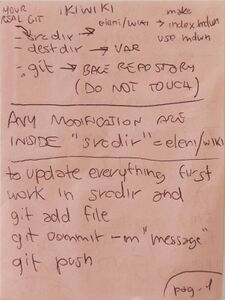 YOUR REAL GIT
IKIWIKI
make
eleni/WIKI → index.mdwn
use mdwn
- srcdir →
- destdir → VAR
- .git → BARE REPOSITORY
(DO NOT TOUCH)
ANY MODIFICATION ARE
INSIDE "srcdir" = eleni/WIKI
to update everything first
work in srcdir and
git add file
git commit -m "message"
git push
pag-1